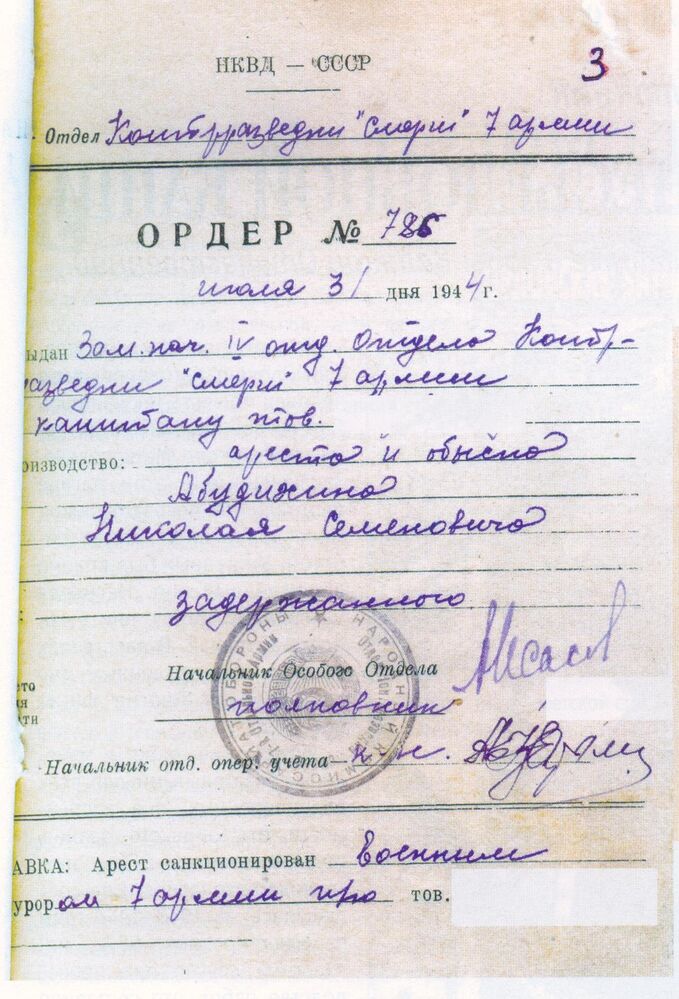 НКВД — СССР
3
Отдел Контрразведки "Смерш" 7 армии
ОРДЕР № 785
июля 31 дня 1944 г.
ыдан Зам. нач. IV отд. Отдела Контр-
азведки "Смерш" 7 армии
капитану тов.
оизводство: ареста и обыска
Абудихина
Николая Семеновича
задержанного
НАРОДНЫЙ КОМИССАРИАТ ОБОРОНЫ
Начальник Особого Отдела
то
я
ти
полковник
Начальник отд. опер. учета
АВКА: Арест санкционирован Военным
урором 7 армии тов.